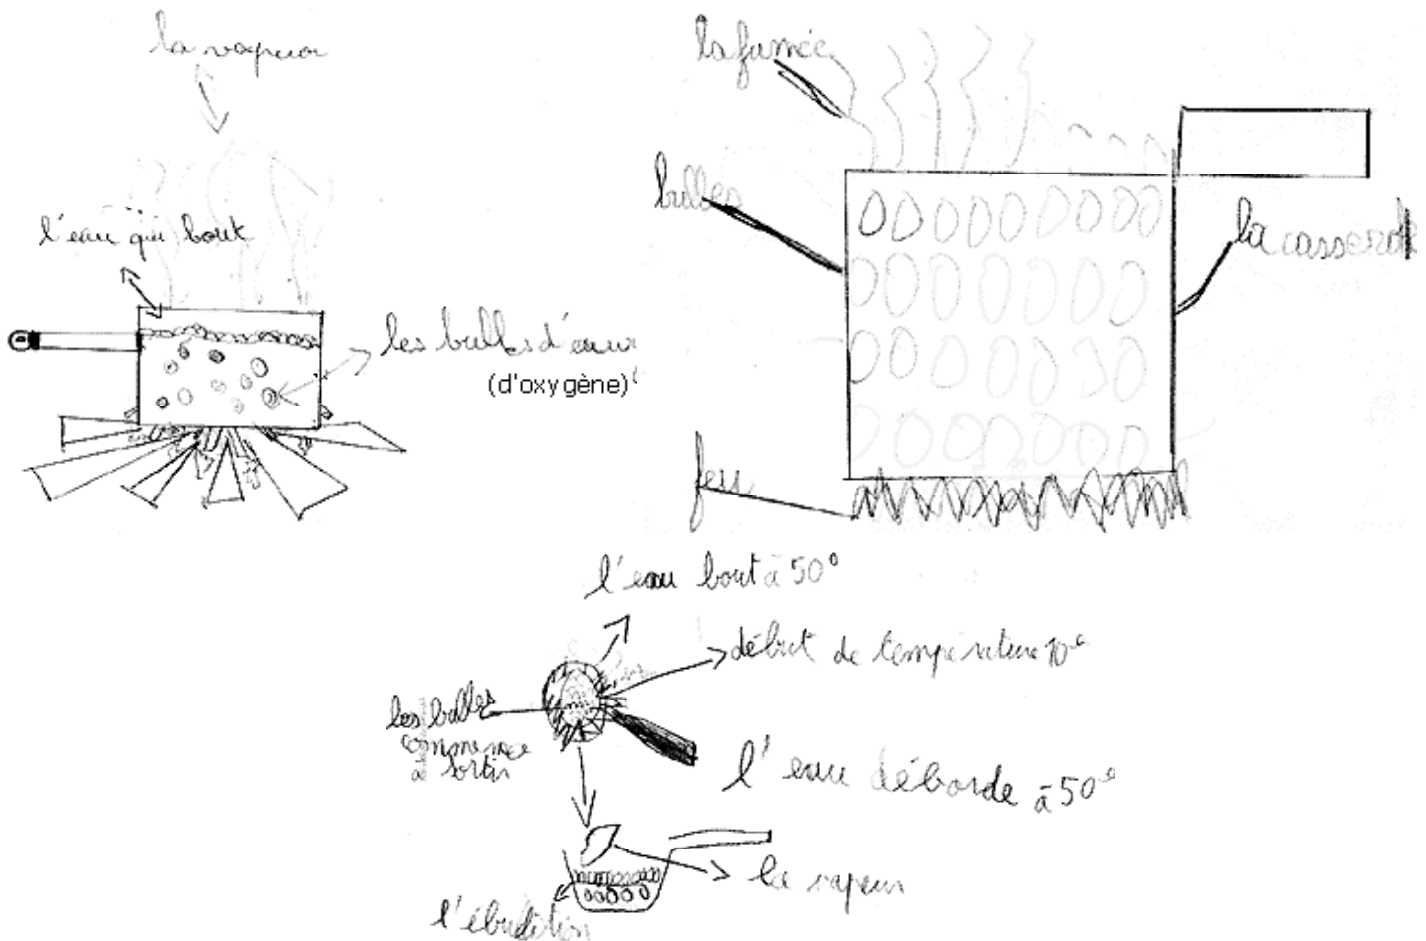 la vapeur
l'eau qui bout
les bulles d'eau
(d'oxygène)
la fumée
bulles
la casserole
feu
l'eau bout à 50°
début de température 10°
les bulles
commence
à sortir
l'eau déborde à 50°
la vapeur
l'ébulition